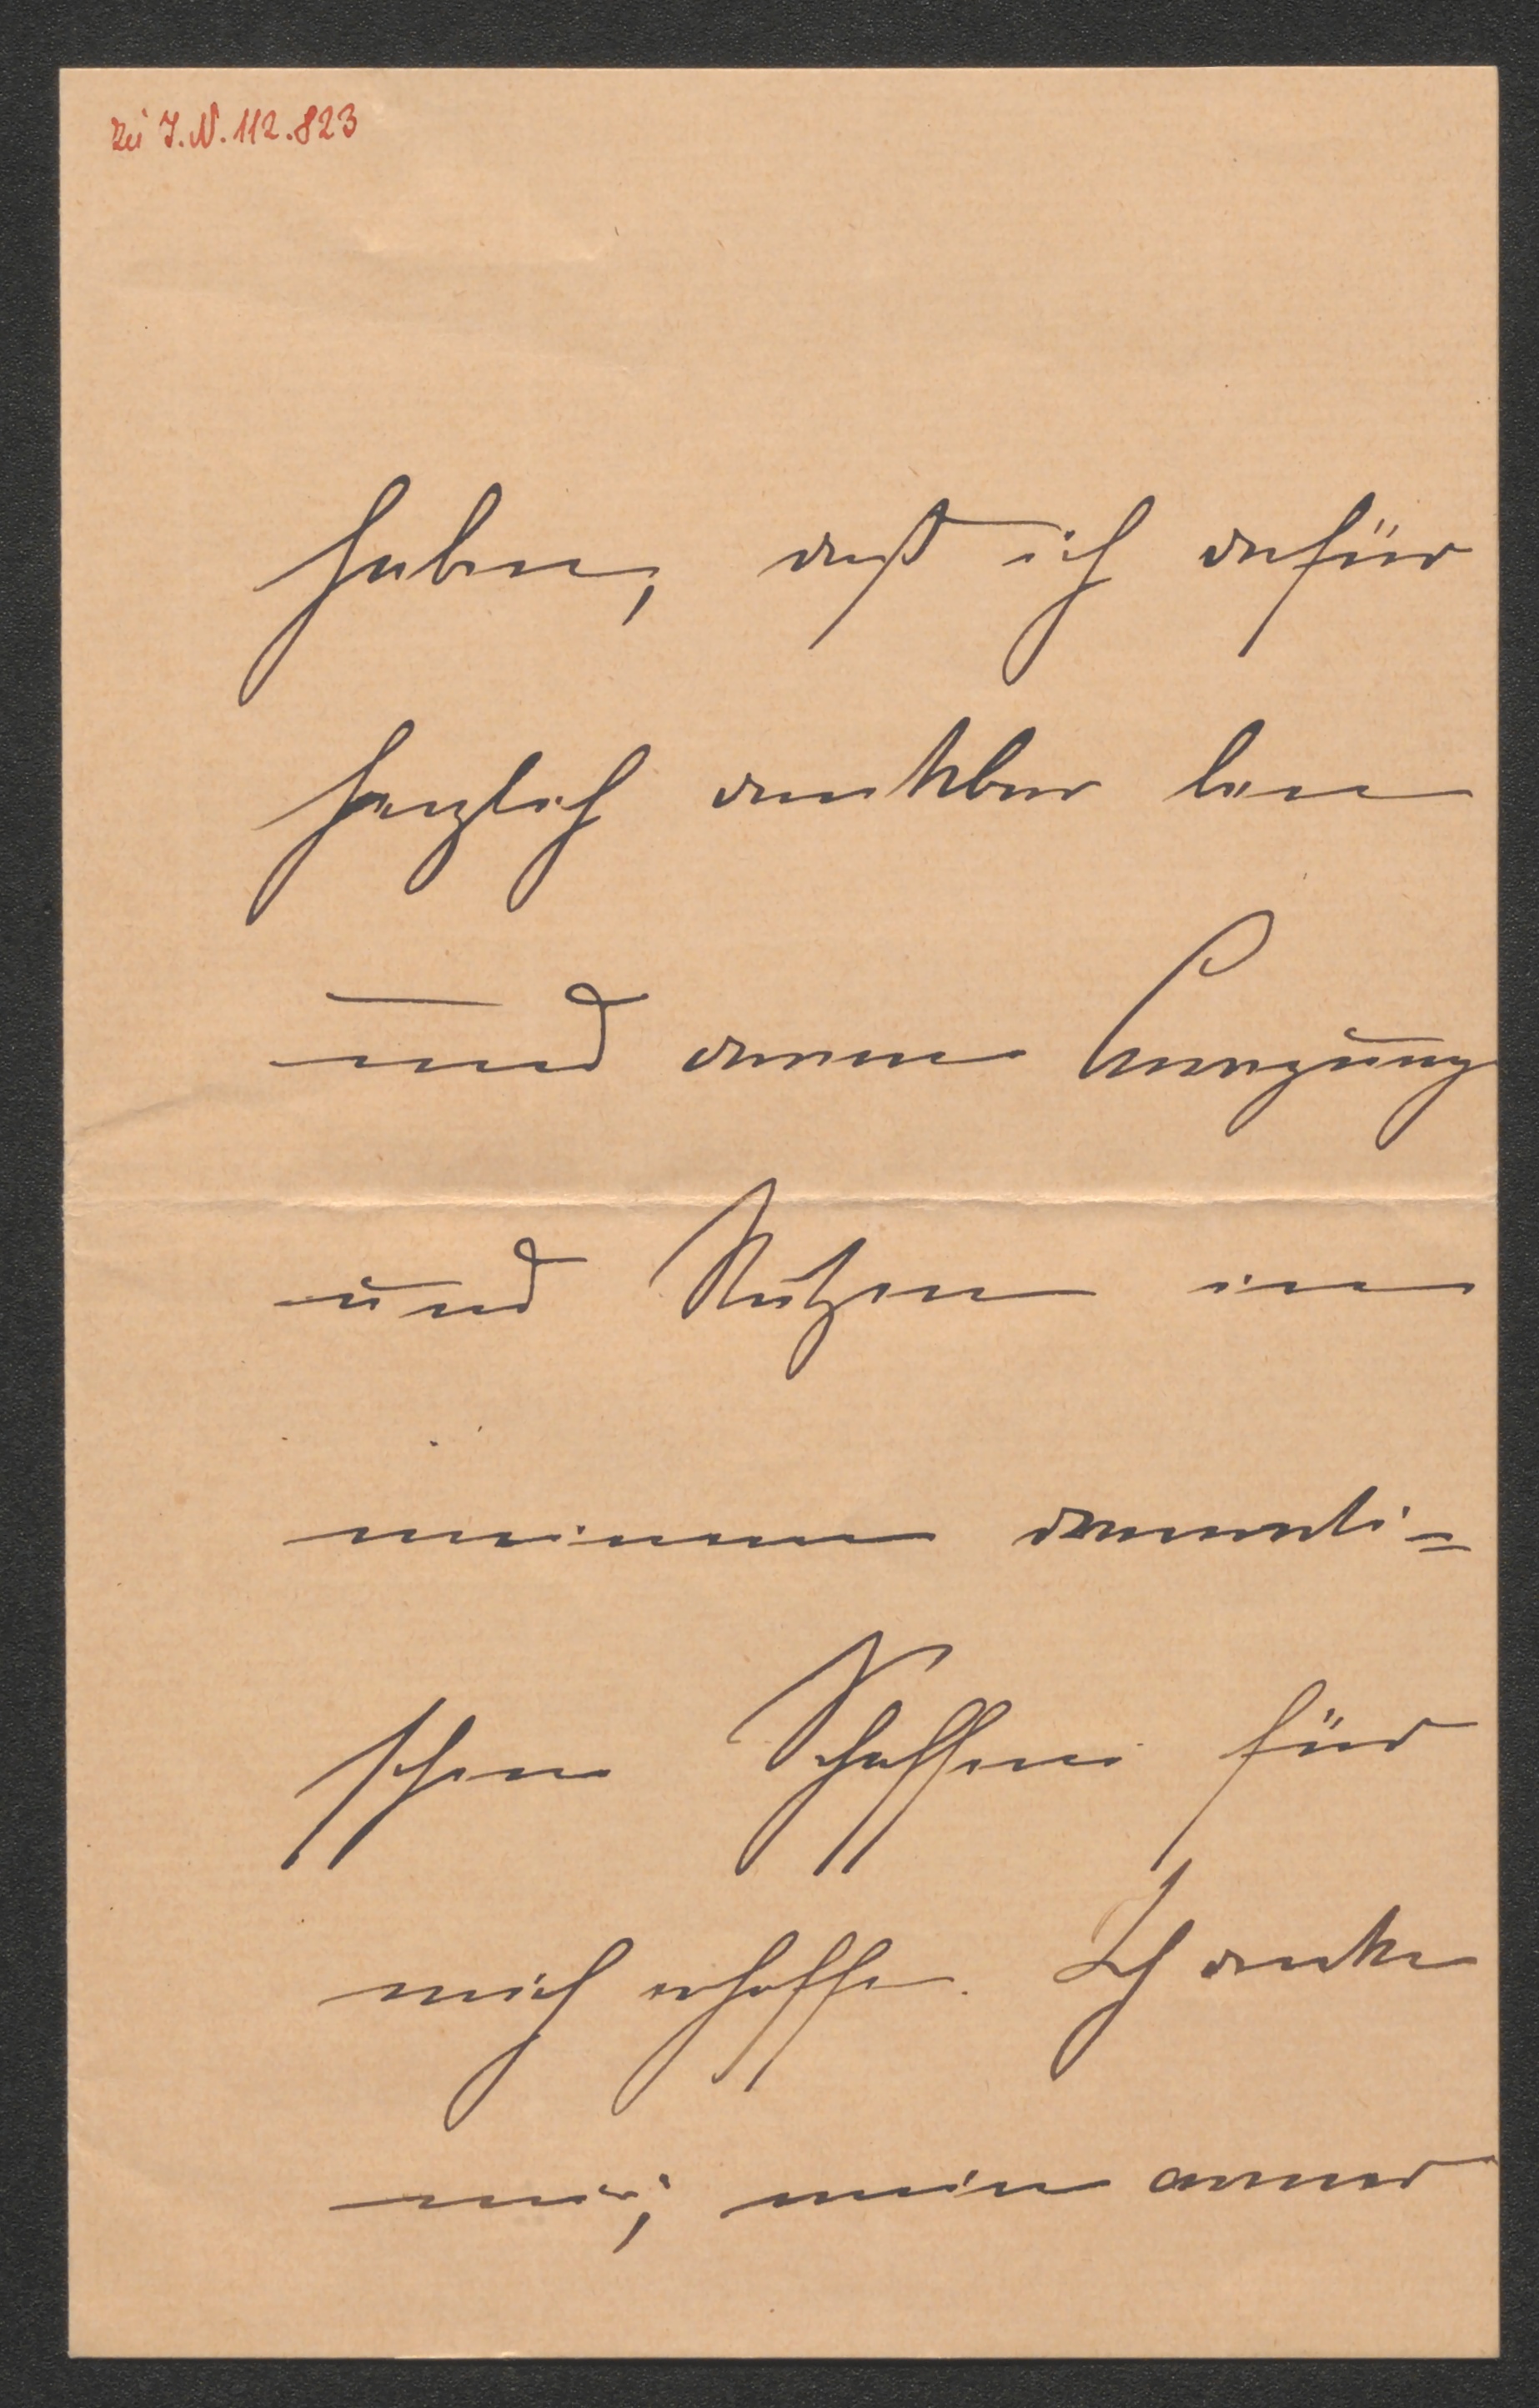 Zu I.N. 112.823
haben, daß ich dafür
herzlich dankbar bin
und daran Anregung
und Nutzen in
meinem dramati=
schen Schaffen für
mich erhoffe. Ich denke
mir, mein armer